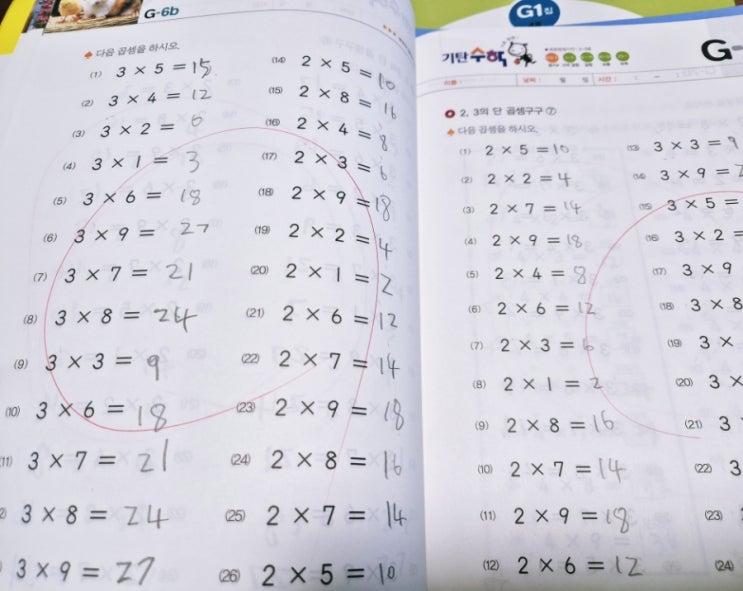 G-6b
다음 곱셈을 하시오.
(1) 3 × 5 = 15
(2) 3 × 4 = 12
(3) 3 × 2 = 6
(4) 3 × 1 = 3
(5) 3 × 6 = 18
(6) 3 × 9 = 27
(7) 3 × 7 = 21
(8) 3 × 8 = 24
(9) 3 × 3 = 9
(10) 3 × 6 = 18
11) 3 × 7 = 21
2) 3 × 8 = 24
) 3 × 9 = 27
(14) 2 × 5 = 10
(15) 2 × 8 = 16
(16) 2 × 4 = 8
(17) 2 × 3 = 6
(18) 2 × 9 = 18
(19) 2 × 2 = 4
(20) 2 × 1 = 2
(21) 2 × 6 = 12
(22) 2 × 7 = 14
(23) 2 × 9 = 18
(24) 2 × 8 = 16
(25) 2 × 7 = 14
(26) 2 × 5 = 10
G1집
기탄수학
G-
이름 : 날짜 : 월 일 시간 : : ~ :
2, 3의 단 곱셈구구 ⑦
다음 곱셈을 하시오.
(1) 2 × 5 = 10
(2) 2 × 2 = 4
(3) 2 × 7 = 14
(4) 2 × 9 = 18
(5) 2 × 4 = 8
(6) 2 × 6 = 12
(7) 2 × 3 = 6
(8) 2 × 1 = 2
(9) 2 × 8 = 16
(10) 2 × 7 = 14
(11) 2 × 9 = 18
(12) 2 × 6 = 12
(13) 3 × 3 = 9
(14) 3 × 9 = 2
(15) 3 × 5 =
(16) 3 × 2 =
(17) 3 × 9
(18) 3 × 8
(19) 3 ×
(20) 3 ×
(21) 3
(22) 3
(23)
(24)